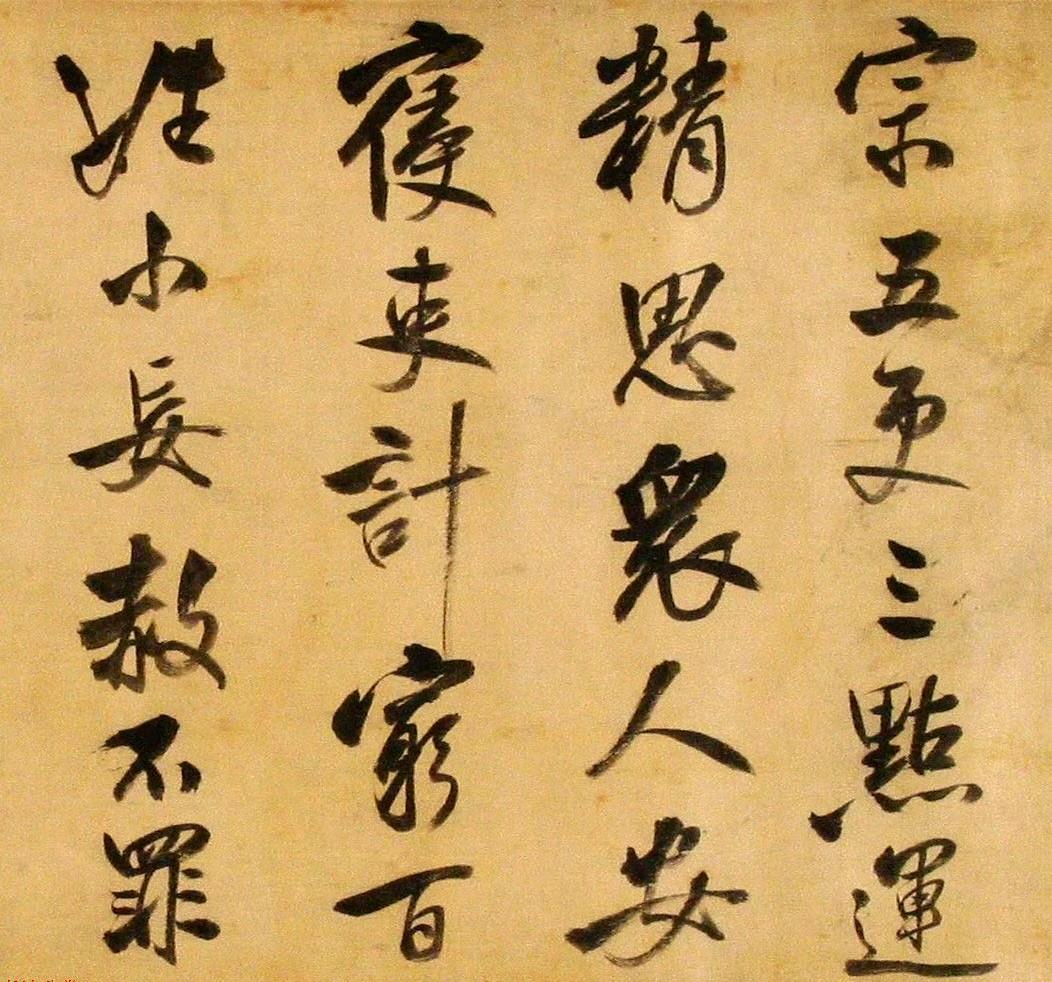 宗五更三點運
精思衆人安
寑吏計窮百
姓小妄赦不罪